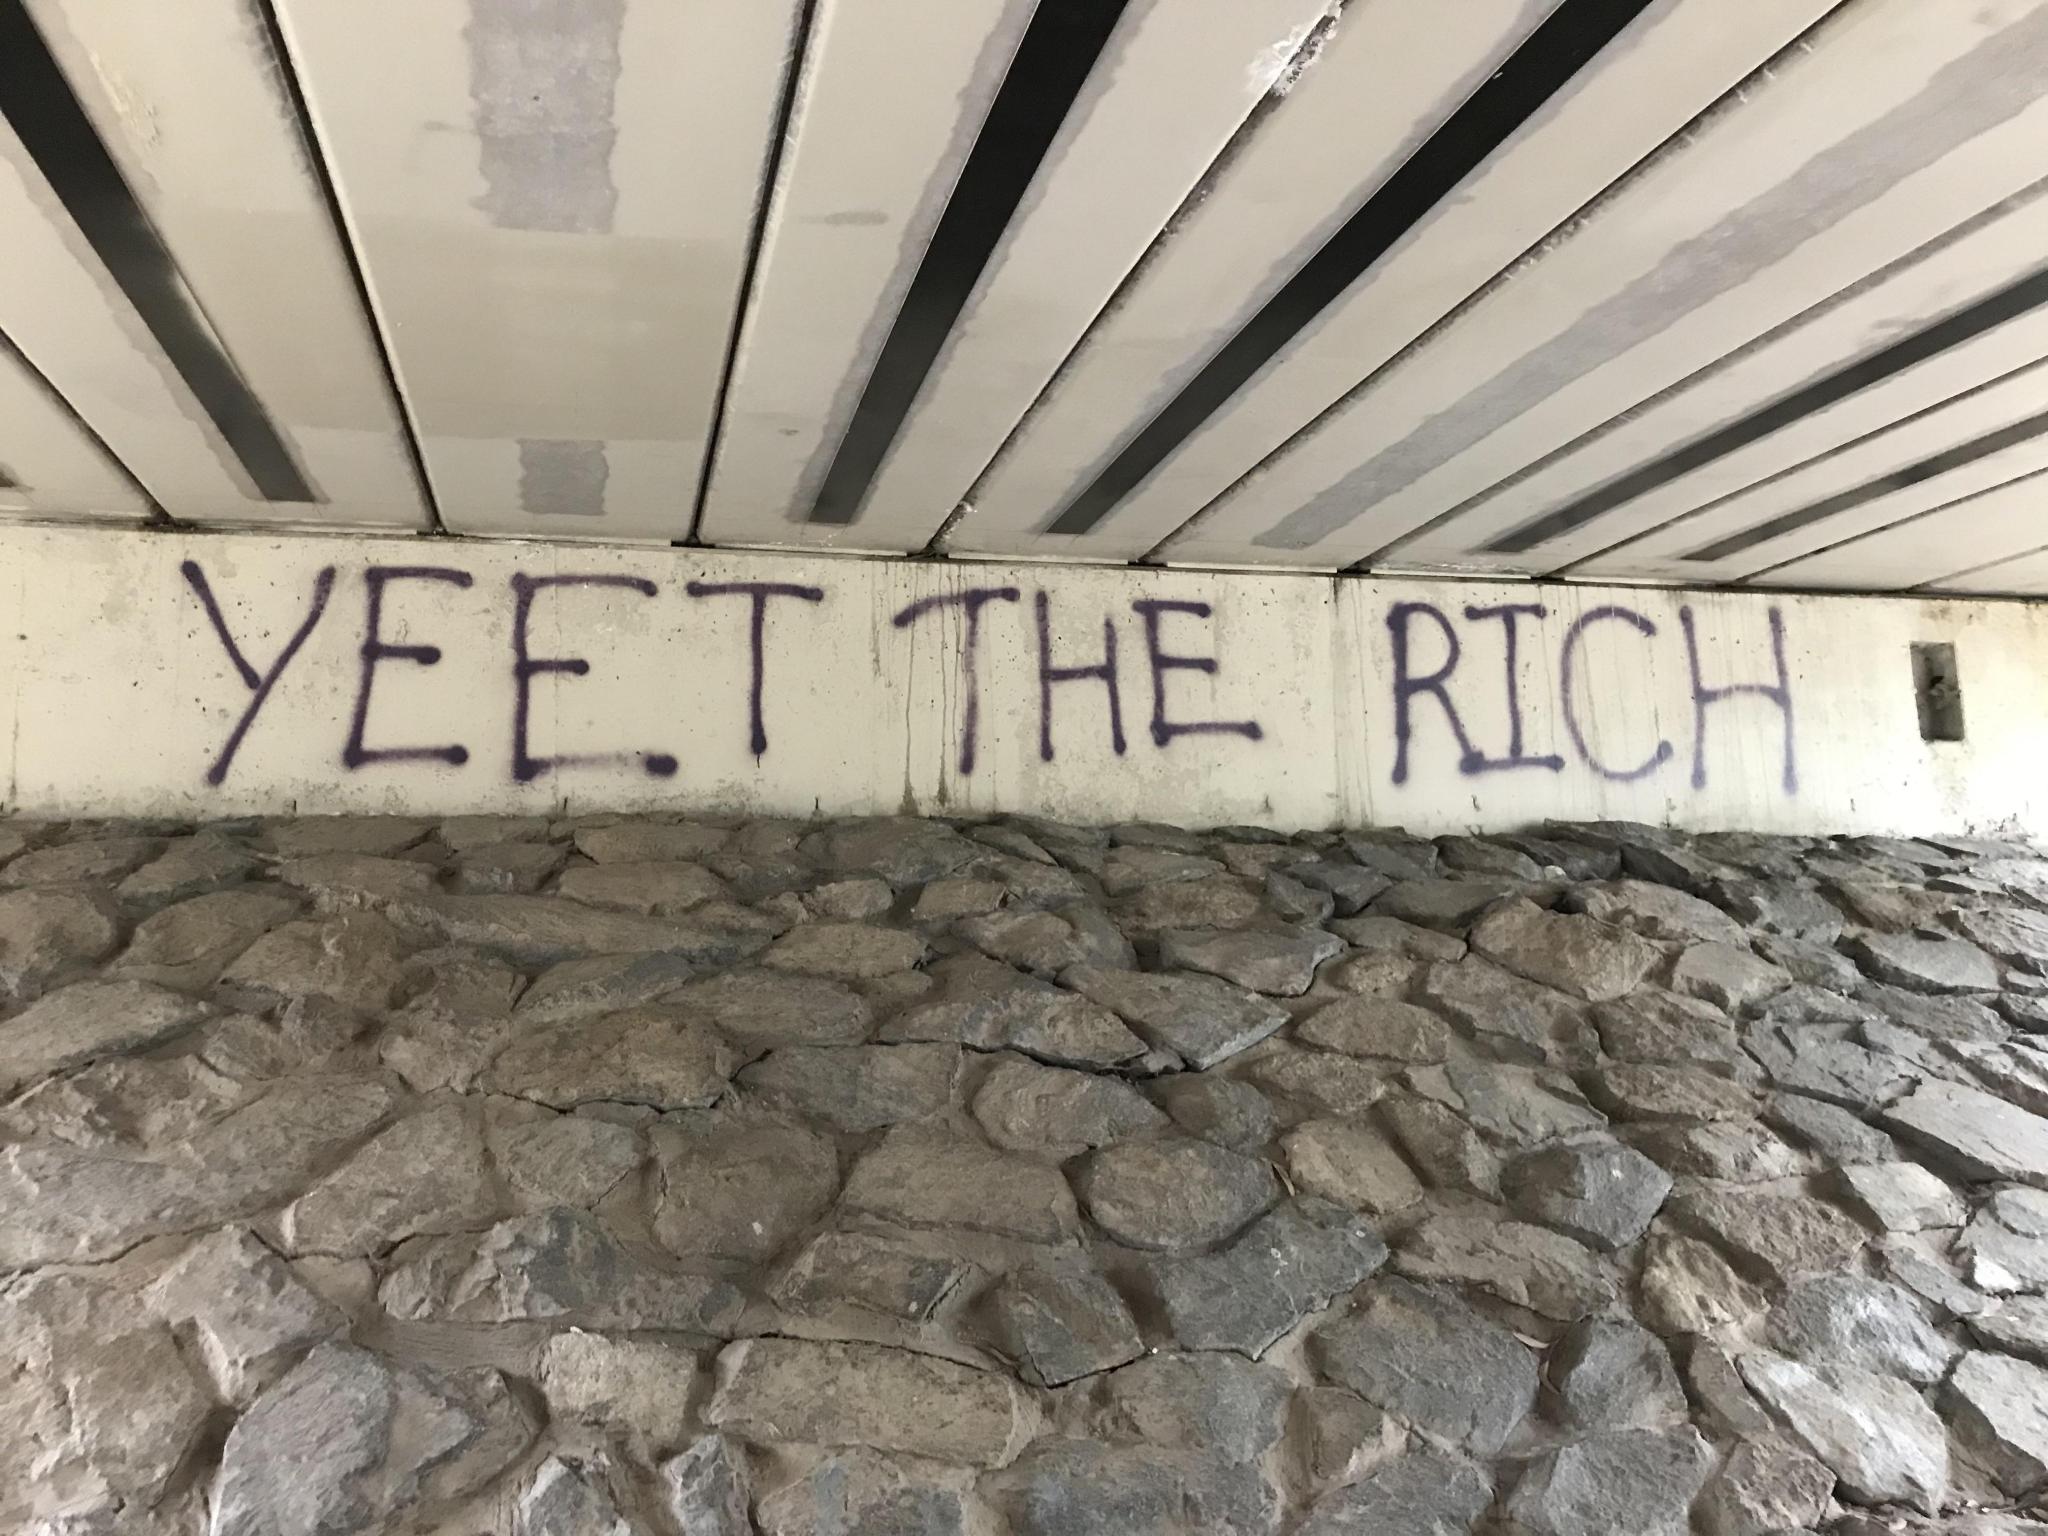 YEET THE RICH